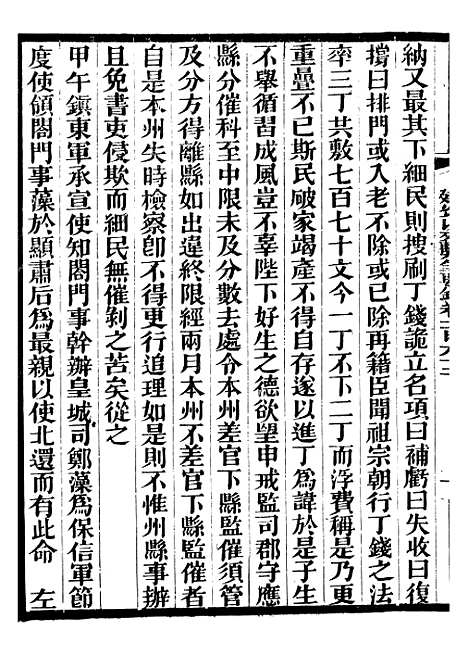 納又最其下細民則搜刷丁錢詭立名項曰補虧曰失收曰復
擔曰排門或入老不除或已除再籍臣聞祖宗朝行丁錢之法
率三丁共敷七百七十文今一丁不下二丁而浮費稱是乃更
重疊不已斯民破家竭產不得自存遂以進丁爲諱於是子生
不舉循習成風豈不辜陛下好生之德欲望申戒監司郡守應
縣分催科至中限未及分數去處令本州差官下縣監催須管
及分方得離縣如出違終限經兩月本州不差官下縣監催者
自是本州失時檢察卽不得更行追理如是則不惟州縣事辦
且免書吏侵欺而細民無催剝之苦矣從之
甲午鎮東軍承宣使知閤門事幹辦皇城司鄭藻爲保信軍節
度使領閤門事藻於顯肅后爲最親以使北還而有此命　左